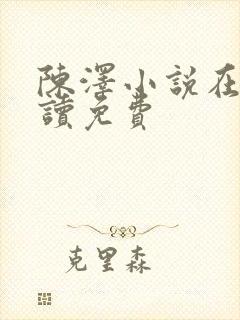 陳澤小說在
讀免費
克里森